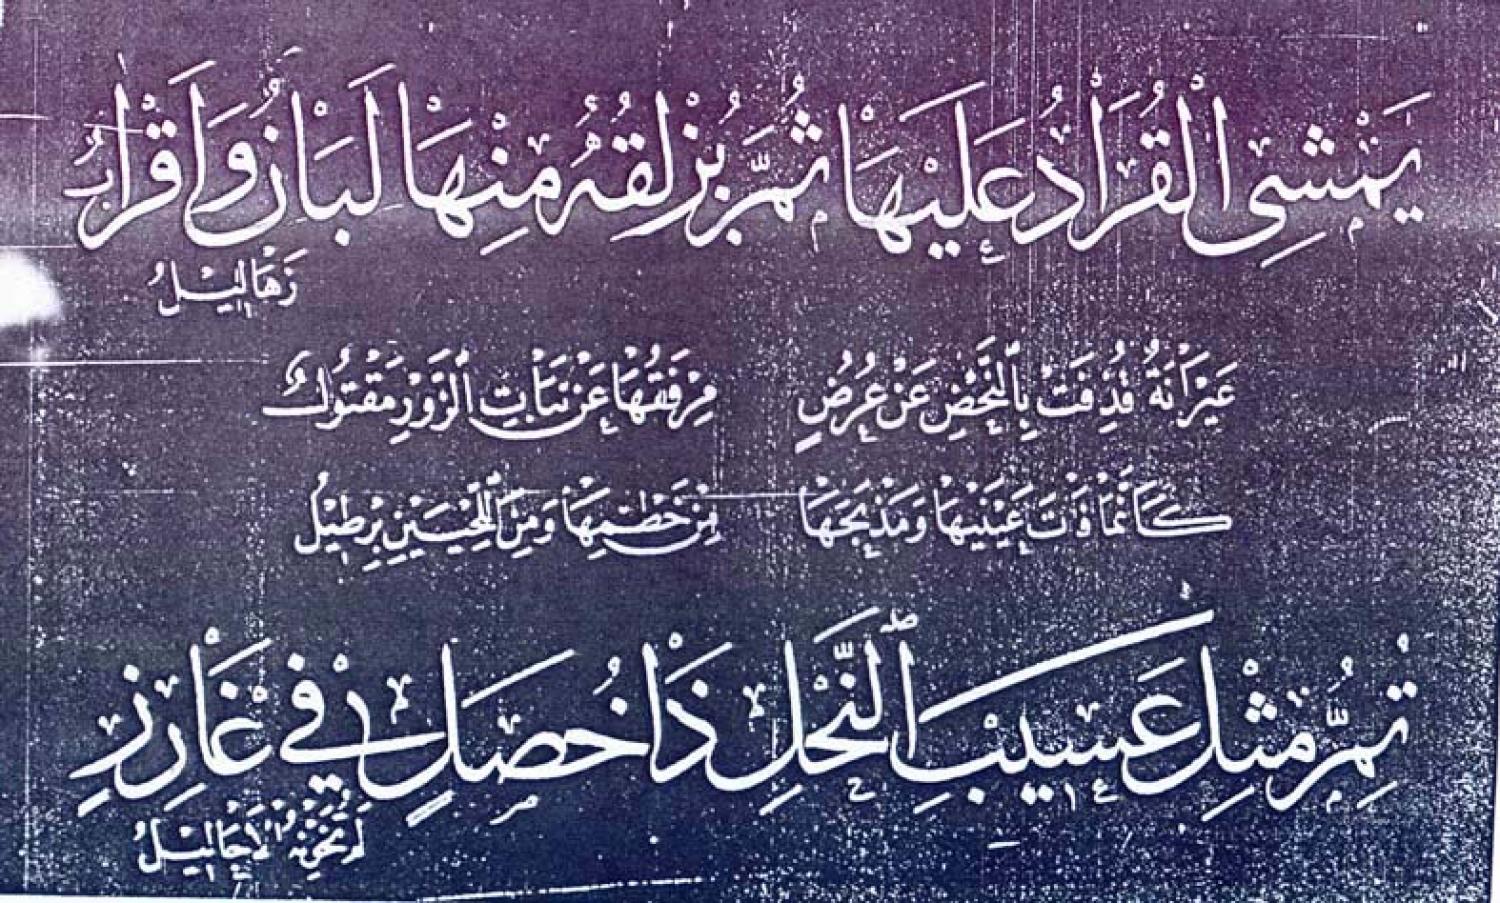 يَمْشِى الْقُرَادُ عَلَيْهَا ثُمَّ يُزْلِقُهُ مِنْهَا لَبَانٌ وَأَقْرَابٌ
زَهَالِيْلُ
عَيْرَانَةٌ قُذِفَتْ بِالنَّحْضِ عَنْ عُرُضٍ مِرْفَقُهَا عَنْ بَنَاتِ الزَّوْرِ مَفْتُولُ
كَأَنَّمَا فَاتَ عَيْنَيْهَا وَمَذْبَحَهَا مِنْ خَطْمِهَا وَمِنَ اللَّحْيَيْنِ بِرْطِيْلُ
تُمِرُّ مِثْلَ عَسِيبِ النَّخْلِ ذَا خُصَلٍ فِي غَارِزٍ
لَمْ تَخَوَّنْهُ الْأَحَالِيْلُ